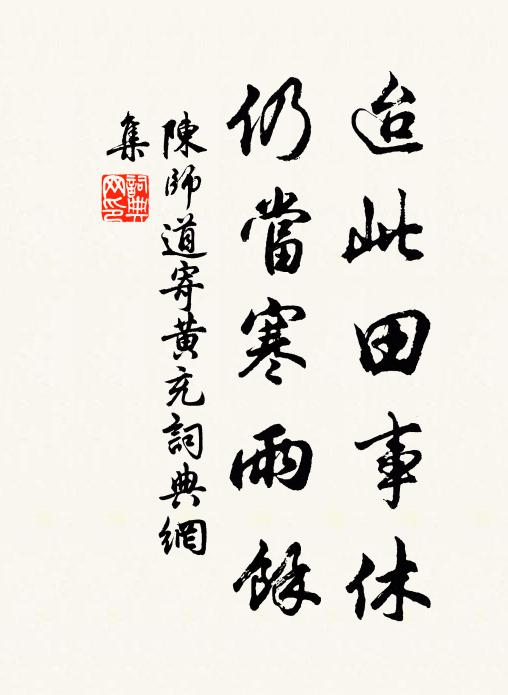 迨此田事休
仍當寒雨餘
陳師道寄黃充詞典網
集
詞典
网印